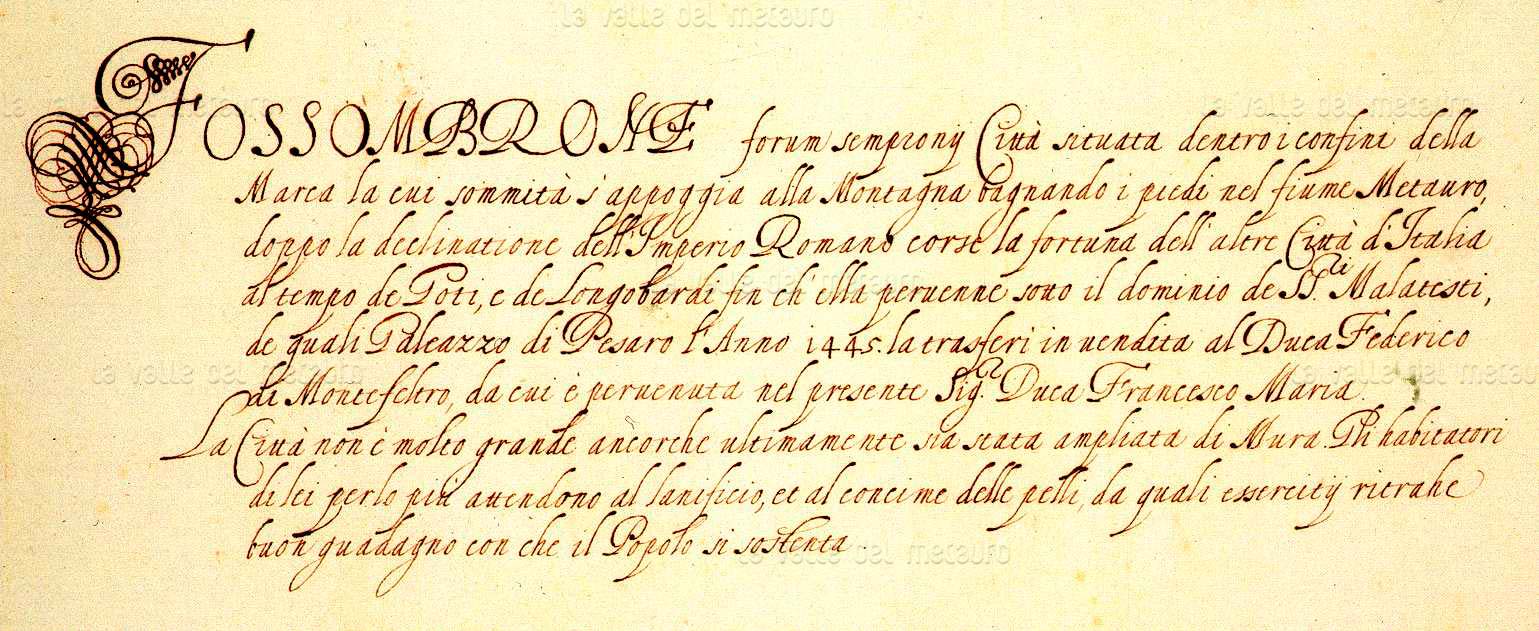 FOSSOMBRONE forum sempronij Città situata dentro i confini della
Marca la cui sommità s'appoggia alla Montagna bagnando i piedi nel fiume Metauro,
doppo la declinatione dell'Imperio Romano corse la fortuna dell'altre Città d'Italia
al tempo de Goti, e de Longobardi fin ch'ella peruenne sotto il dominio de SS.ri Malatesti,
de quali Galeazzo di Pesaro l'Anno 1445. la trasferì in uendita al Duca Federico
di Montefeltro, da cui è peruenuta nel presente Sig.r Duca Francesco Maria.
La Città non è molto grande ancorche ultimamente sia stata ampliata di Mura. Gli habitatori
di lei per lo più attendono al lanificio, et al concime delle pelli, da quali essercitij ritrahe
buon guadagno con che il Popolo si sostenta.
la valle del metauro
la valle del metauro
la valle del metauro
la valle del metauro
la valle del metauro
la valle del metauro
la valle del metauro